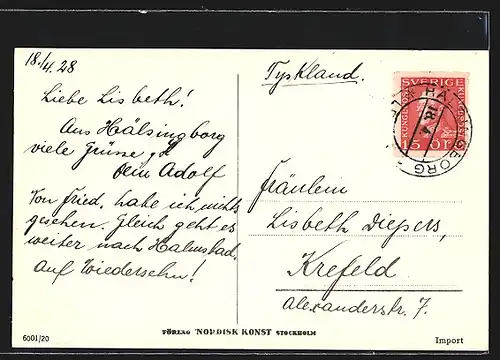 18./4.28
Liebe Lisbeth!
Aus Hälsingborg
viele Grüsse
Dein Adolf
Von Fried. habe ich nichts
gesehen. Gleich geht es
weiter nach Halmstad.
Auf Wiedersehn!
Tyskland.
SVERIGE
15 ÖRE
HÄLSINGBORG
18. 4
Fräulein
Lisbeth Diepers,
Krefeld
Alexanderstr. 7.
6001/20
FÖRLAG NORDISK KONST STOCKHOLM
Import